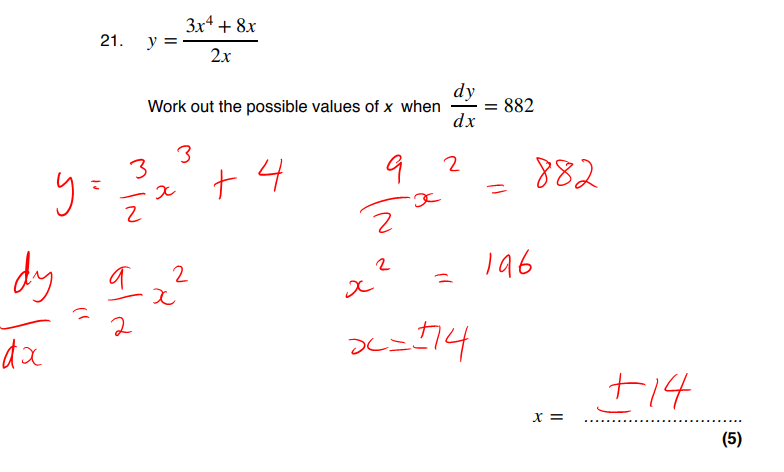 21. y = (3x⁴ + 8x)/(2x)
Work out the possible values of x when dy/dx = 882
y = 3/2 x³ + 4
dy/dx = 9/2 x²
9/2 x² = 882
x² = 196
x = ±14
x = ±14
(5)